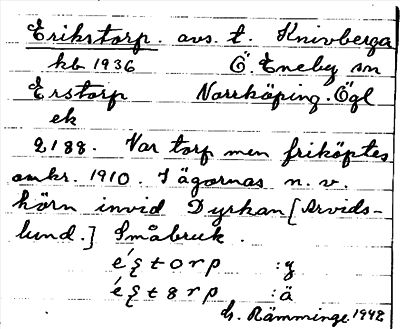 Erikstorp. avs. t. Knivberga
kb 1936 Ö. Eneby sn
Erstorp Norrköping. Ögl
ek
2188. Var torp men friköptes
omkr. 1910. I ägornas n. v.
hörn invid Dyrkan [Arvids-
lund.] Småbruk.
:y
:ä
G. Rämminge 1942